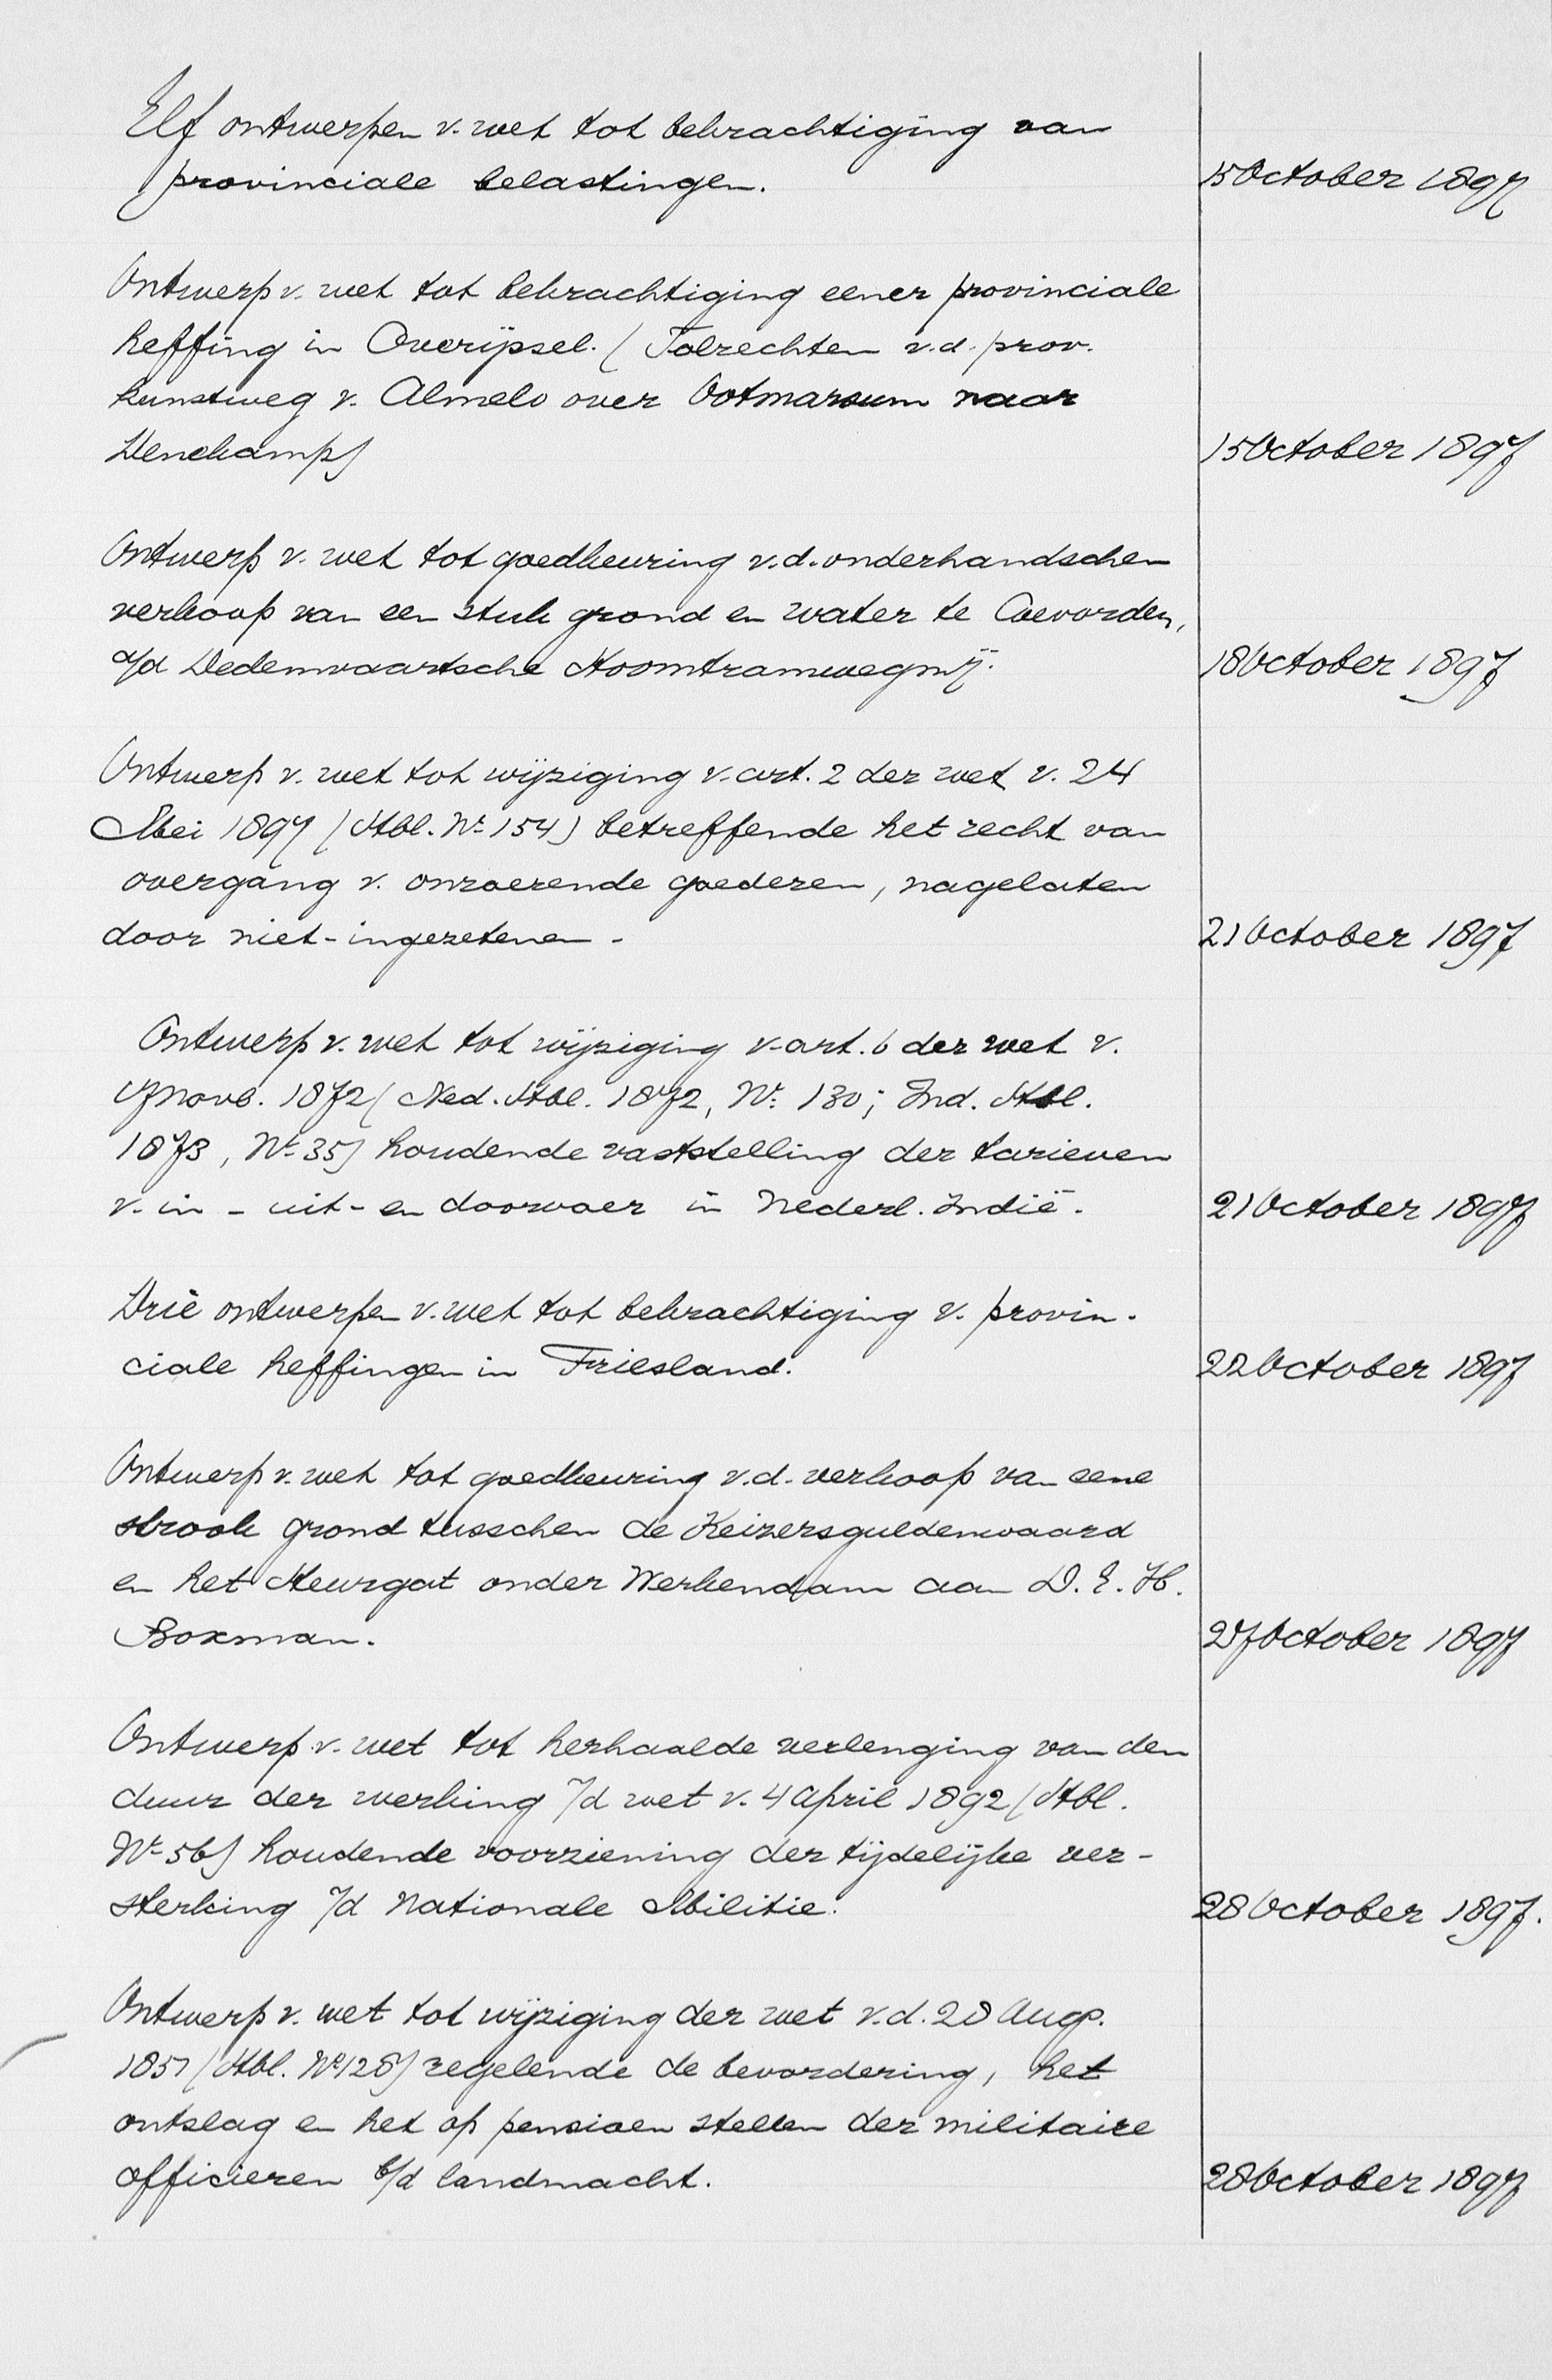 Elf ontwerpen v. wet tot bekrachtiging van
provinciale belastingen.
15 October 1897
Ontwerp v. wet tot bekrachtiging eener provinciale
heffing in Overijssel. (Tolrechten v.d. prov.
kunstweg v. Almelo over Ootmarsum naar
Denekamp)
15 October 1897
Ontwerp v. wet tot goedkeuring v.d. onderhandschen
verkoop van een stuk grond en water te Coevorden,
a/d Dedemvaartsche Stoomtramwegmij.
18 October 1897
Ontwerp v. wet tot wijziging v. art. 2 der wet v. 24
Mei 1897 (Stbl. No 154) betreffende het recht van
overgang v. onroerende goederen, nagelaten
door niet-ingezetenen.
21 October 1897
Ontwerp v. wet tot wijziging v. art. 6 der wet v.
17 Novb. 1872 (Ned. Stbl. 1872, No. 130; Ind. Stbl.
1873, No 35) houdende vaststelling der tarieven
v. in- uit- en doorvoer in Nederl. Indië.
21 October 1897
Drie ontwerpen v. wet tot bekrachtiging v. provin-
ciale heffingen in Friesland.
22 October 1897
Ontwerp v. wet tot goedkeuring v.d. verkoop van eene
strook grond tusschen de Keizersguldenwaard
en het Steurgat onder Werkendam aan D. E. H.
Boxman.
27 October 1897
Ontwerp v. wet tot herhaalde verlenging van den
duur der werking v/d wet v. 4 April 1892 (Stbl.
No 56) houdende voorziening der tijdelijke ver-
sterking v/d Nationale Militie.
28 October 1897.
Ontwerp v. wet tot wijziging der wet v.d. 28 Aug.
1851 (Stbl. No 128) regelende de bevordering, het
ontslag en het op pensioen stellen der militaire
officieren b/d landmacht.
28 October 1897